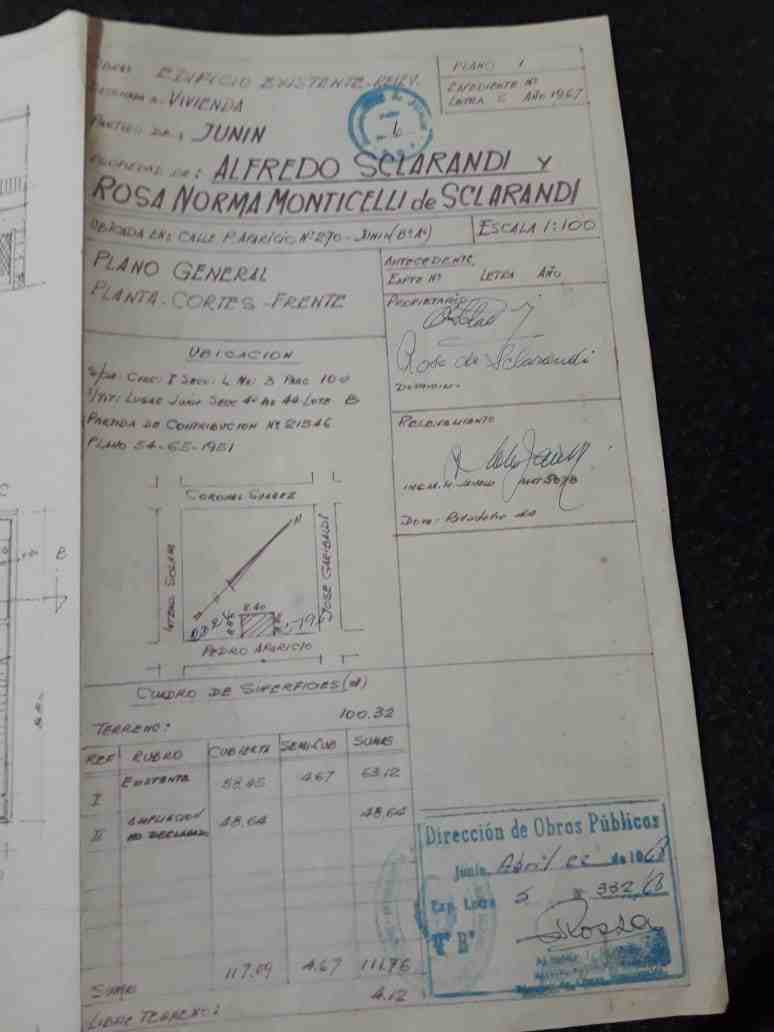 OBRA: EDIFICIO EXISTENTE-RELEV.
DESTINADA A: VIVIENDA
PARTIDO DE: JUNIN
PROPIEDAD DE: ALFREDO SCLARANDI Y
ROSA NORMA MONTICELLI de SCLARANDI
UBICADA EN: CALLE P. APARICIO Nº 270 - JUNIN (Bs As)
ESCALA 1:100
PLANO 1
EXPEDIENTE Nº
LETRA S AÑO 1967
PLANO GENERAL
PLANTA - CORTES - FRENTE
ANTECEDENTE
EXPTE Nº LETRA AÑO
PROPIETARIO
Rosa de Sclarandi
DOMICILIO:
UBICACION
CIRC: I SECC: L Mz: 3 PARC 10
LUGAR JUNIN SECC LOTE B
PARTIDA DE CONTRIBUCION Nº 21546
PLANO 54-65-1951
RELEVAMIENTO
DOM:
CORONEL SUAREZ
N
JOSE GARIBALDI
8.40
PEDRO APARICIO
CUADRO DE SUPERFICIES (m²)
TERRENO: 100.32
REF RUBRO CUBIERTA SEMI-CUB SUMAS
I EXISTENTE 58.45 4.67 63.12
II AMPLIACION NO DECLARADA 48.64 48.64
SUMAS 4.67 111.76
LIBRE TERRENO: 4.12
B
Dirección de Obras Públicas
Junín, Abril 22 de 1968
Exp. Letra S 332/68